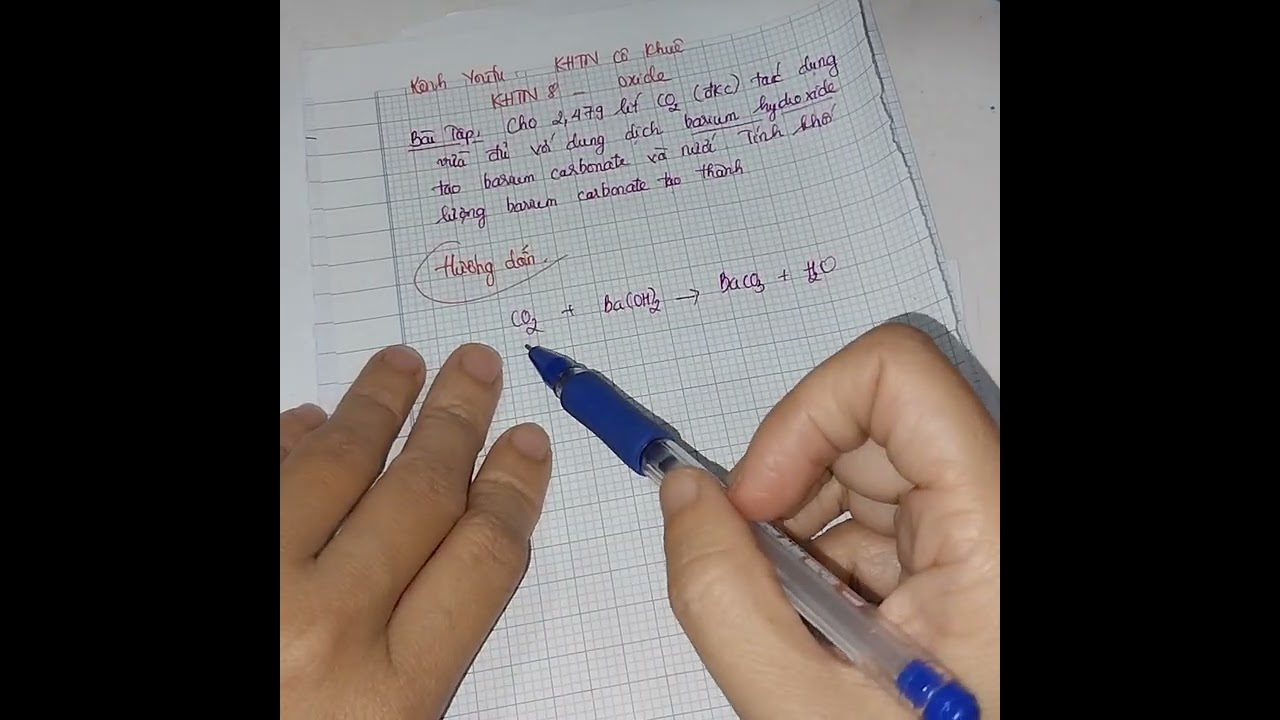 Kênh Youtu. KHTN Cô Khuê
KHTN 8 - oxide
Bài Tập. Cho 2,479 lít CO2 (đkc) tác dụng
vừa đủ với dung dịch barium hydroxide
tạo barium carbonate và nước Tính khối
lượng barium carbonate tạo thành
Hướng dẫn.
CO2 + Ba(OH)2 → BaCO3 + H2O